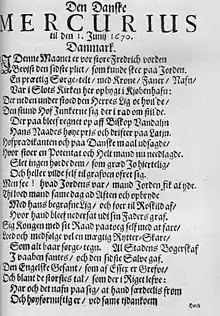 Den Danske
MERCURIUS
til den 1. Junij 1670.
Danmark.
I Denne Maanet er vor store Fredrich vorden
Beviist den sidste pligt, som kunde skee paa Jorden.
En prectig Sørge-telt, med Krone, Faner, Nafn,
Var i Slots Kirken her opbygt i Kiøbenhafn:
Der neden under stood den Herres Lig et hvile,
Den stund Hof Junkerne sig der i rad om stille.
Der paa bleff regnet op aff Biskop Vandalin
Hans Naades høye priis og drifter paa Latjn.
Hofprædikanten och paa Danske maal udsagde,
Hvor stoer en Potentat och Helt mand nu nedlagde.
Slet ingen hørte det, som grad jo hiertelig
Och heller vilde self til grafven ofret sig.
Men see! hvad Jordens var, mand Jorden fik at yde.
Thi lood mand samme dag ad Aften och opbryde
Med hans begrafven Lig, och foer til Roskild af,
Hvor hand bleff nedersat udi sin Faders graf.
Sig Kongen med sit Raad paatoeg self med at fare,
Lood och medfølge vel en mægtig Rytter-Skare,
Som alt baar sørge-tegn. All Stadens Borgerskaf
I vaaben fantes, och den sidste Salve gaf.
Den Engelske Gesant, som af Essex er Grefve,
Och blant de største tal, som der i Riget lefve,
Har och det nafn paa sig, at hand særdelis from
Och høyfornuftig er, ved samme tidankom
Herid